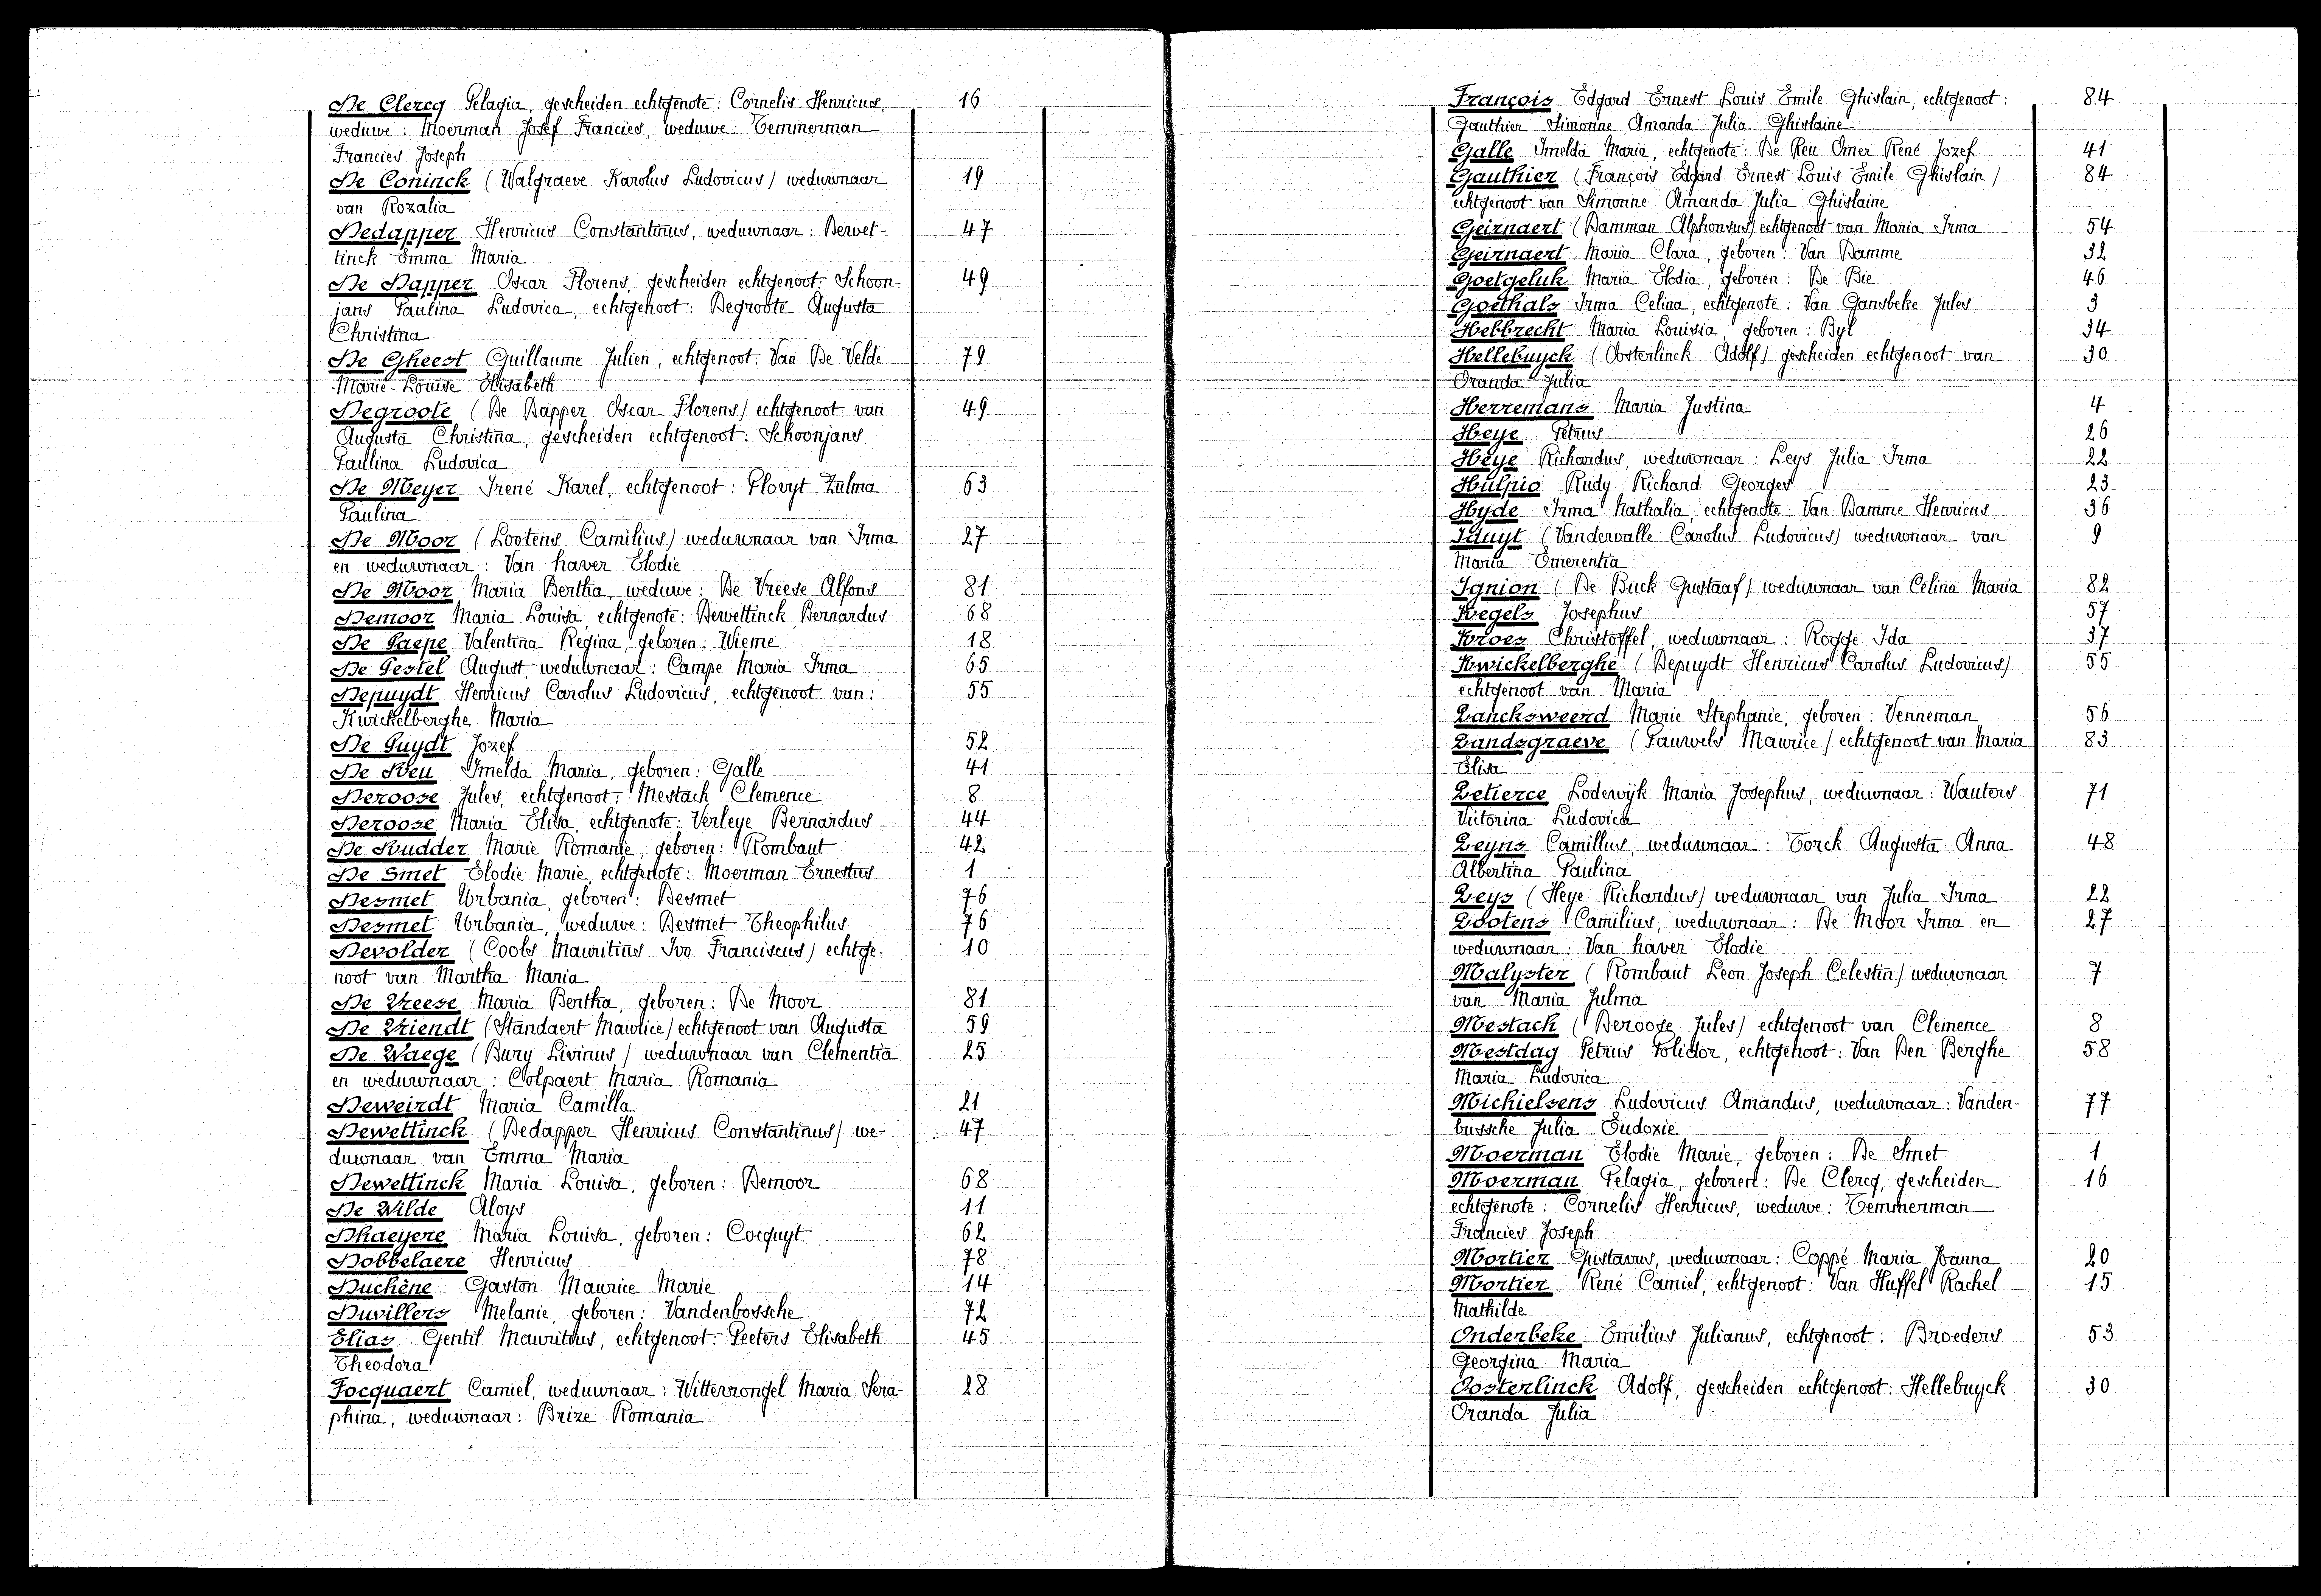 De Clercq Pelagia, gescheiden echtgenote: Cornelis Henricus, 16
weduwe: Moerman Josef Francies, weduwe: Temmerman
Francies Joseph
De Coninck (Walgraeve Karolus Ludovicus) weduwnaar 19
van Rozalia
Dedapper Henricus Constantinus, weduwnaar: Dewet- 47
tinck Emma Maria
De Dapper Oscar Florens, gescheiden echtgenoot: Schoon- 49
jans Paulina Ludovica, echtgenoot: Degroote Augusta
Christina
De Gheest Guillaume Julien, echtgenoot: Van De Velde 79
Marie-Louise Elisabeth
Degroote (De Dapper Oscar Florens) echtgenoot van 49
Augusta Christina, gescheiden echtgenoot: Schoonjans
Paulina Ludovica
De Meyer Irené Karel, echtgenoot: Plovyt Zulma 63
Paulina
De Moor (Lootens Camilius) weduwnaar van Irma 27
en weduwnaar: Van haver Elodie
De Moor Maria Bertha, weduwe: De Vreese Alfons 81
Demoor Maria Louisa, echtgenote: Dewettinck Bernardus 68
De Paepe Valentina Regina, geboren: Wieme 18
De Pestel August, weduwnaar: Campe Maria Irma 65
Depuydt Henricus Carolus Ludovicus, echtgenoot van: 55
Kwickelberghe Maria
De Puydt Jozef 52
De Reu Imelda Maria, geboren: Galle 41
Deroose Jules, echtgenoot: Mestach Clemence 8
Deroose Maria Elisa, echtgenote: Verleye Bernardus 44
De Rudder Marie Romanie, geboren: Rombaut 42
De Smet Elodie Marie, echtgenote: Moerman Ernestus 1
Desmet Urbania, geboren: Desmet 76
Desmet Urbania, weduwe: Desmet Theophilus 76
Devolder (Cools Mauritius Ivo Franciscus) echtge- 10
noot van Martha Maria
De Vreese Maria Bertha, geboren: De Moor 81
De Vriendt (Standaert Maurice) echtgenoot van Augusta 59
De Waege (Bury Livinus) weduwnaar van Clementia 25
en weduwnaar: Colpaert Maria Romania
Deweirdt Maria Camilla 21
Dewettinck (Dedapper Henricus Constantinus) we- 47
duwnaar van Emma Maria
Dewettinck Maria Louisa, geboren: Demoor 68
De Wilde Aloys 11
Dhaeyere Maria Louisa, geboren: Cocquyt 62
Dobbelaere Henricus 78
Duchêne Gaston Maurice Marie 14
Duvillers Melanie, geboren: Vandenbossche 72
Elias Gentil Mauritius, echtgenoot: Peeters Elisabeth 45
Theodora
Focquaert Camiel, weduwnaar: Witterrongel Maria Sera- 28
phina, weduwnaar: Brize Romania
François Edgard Ernest Louis Emile Ghislain, echtgenoot: 84
Gauthier Simonne Amanda Julia Ghislaine
Galle Imelda Maria, echtgenote: De Reu Omer René Jozef 41
Gauthier (François Edgard Ernest Louis Emile Ghislain) 84
echtgenoot van Simonne Amanda Julia Ghislaine
Geirnaert (Damman Alphonsus) echtgenoot van Maria Irma 54
Geirnaert Maria Clara, geboren: Van Damme 32
Goetgeluk Maria Elodia, geboren: De Bie 46
Goethals Irma Celina, echtgenote: Van Gansbeke Jules 3
Hebbrecht Maria Louisia, geboren: Byl 34
Hellebuyck (Oosterlinck Adolf) gescheiden echtgenoot van 30
Oranda Julia
Herremans Maria Justina 4
Heye Petrus 26
Heye Richardus, weduwnaar: Leys Julia Irma 22
Hulpio Rudy Richard Georges 23
Hyde Irma Nathalia, echtgenote: Van Damme Henricus 36
Iduyt (Vandewalle Carolus Ludovicus) weduwnaar van 9
Maria Emerentia
Ignion (De Buck Gustaaf) weduwnaar van Celina Maria 82
Kegels Josephus 57
Kroes Christoffel, weduwnaar: Rogge Ida 37
Kwickelberghe (Depuydt Henricus Carolus Ludovicus) 55
echtgenoot van Maria
Lancksweerd Marie Stephanie, geboren: Venneman 56
Landsgraeve (Pauwels Maurice) echtgenoot van Maria 83
Elisa
Letierce Lodewijk Maria Josephus, weduwnaar: Wauters 71
Victorina Ludovica
Leyns Camillus, weduwnaar: Torck Augusta Anna 48
Albertina Paulina
Leys (Heye Richardus) weduwnaar van Julia Irma 22
Lootens Camilius, weduwnaar: De Moor Irma en 27
weduwnaar: Van haver Elodie
Malyster (Rombaut Leon Joseph Celestin) weduwnaar 7
van Maria Julma
Mestach (Deroose Jules) echtgenoot van Clemence 8
Mestdag Petrus Polidor, echtgenoot: Van Den Berghe 58
Maria Ludovica
Michielsens Ludovicus Amandus, weduwnaar: Vanden- 77
bussche Julia Eudoxie
Moerman Elodie Marie, geboren: De Smet 1
Moerman Pelagia, geboren: De Clercq, gescheiden 16
echtgenote: Cornelis Henricus, weduwe: Temmerman
Francies Joseph
Mortier Gustavus, weduwnaar: Coppé Maria Joanna 20
Mortier René Camiel, echtgenoot: Van Huffel Rachel 15
Mathilde
Onderbeke Emilius Julianus, echtgenoot: Broeders 53
Georgina Maria
Oosterlinck Adolf, gescheiden echtgenoot: Hellebuyck 30
Oranda Julia